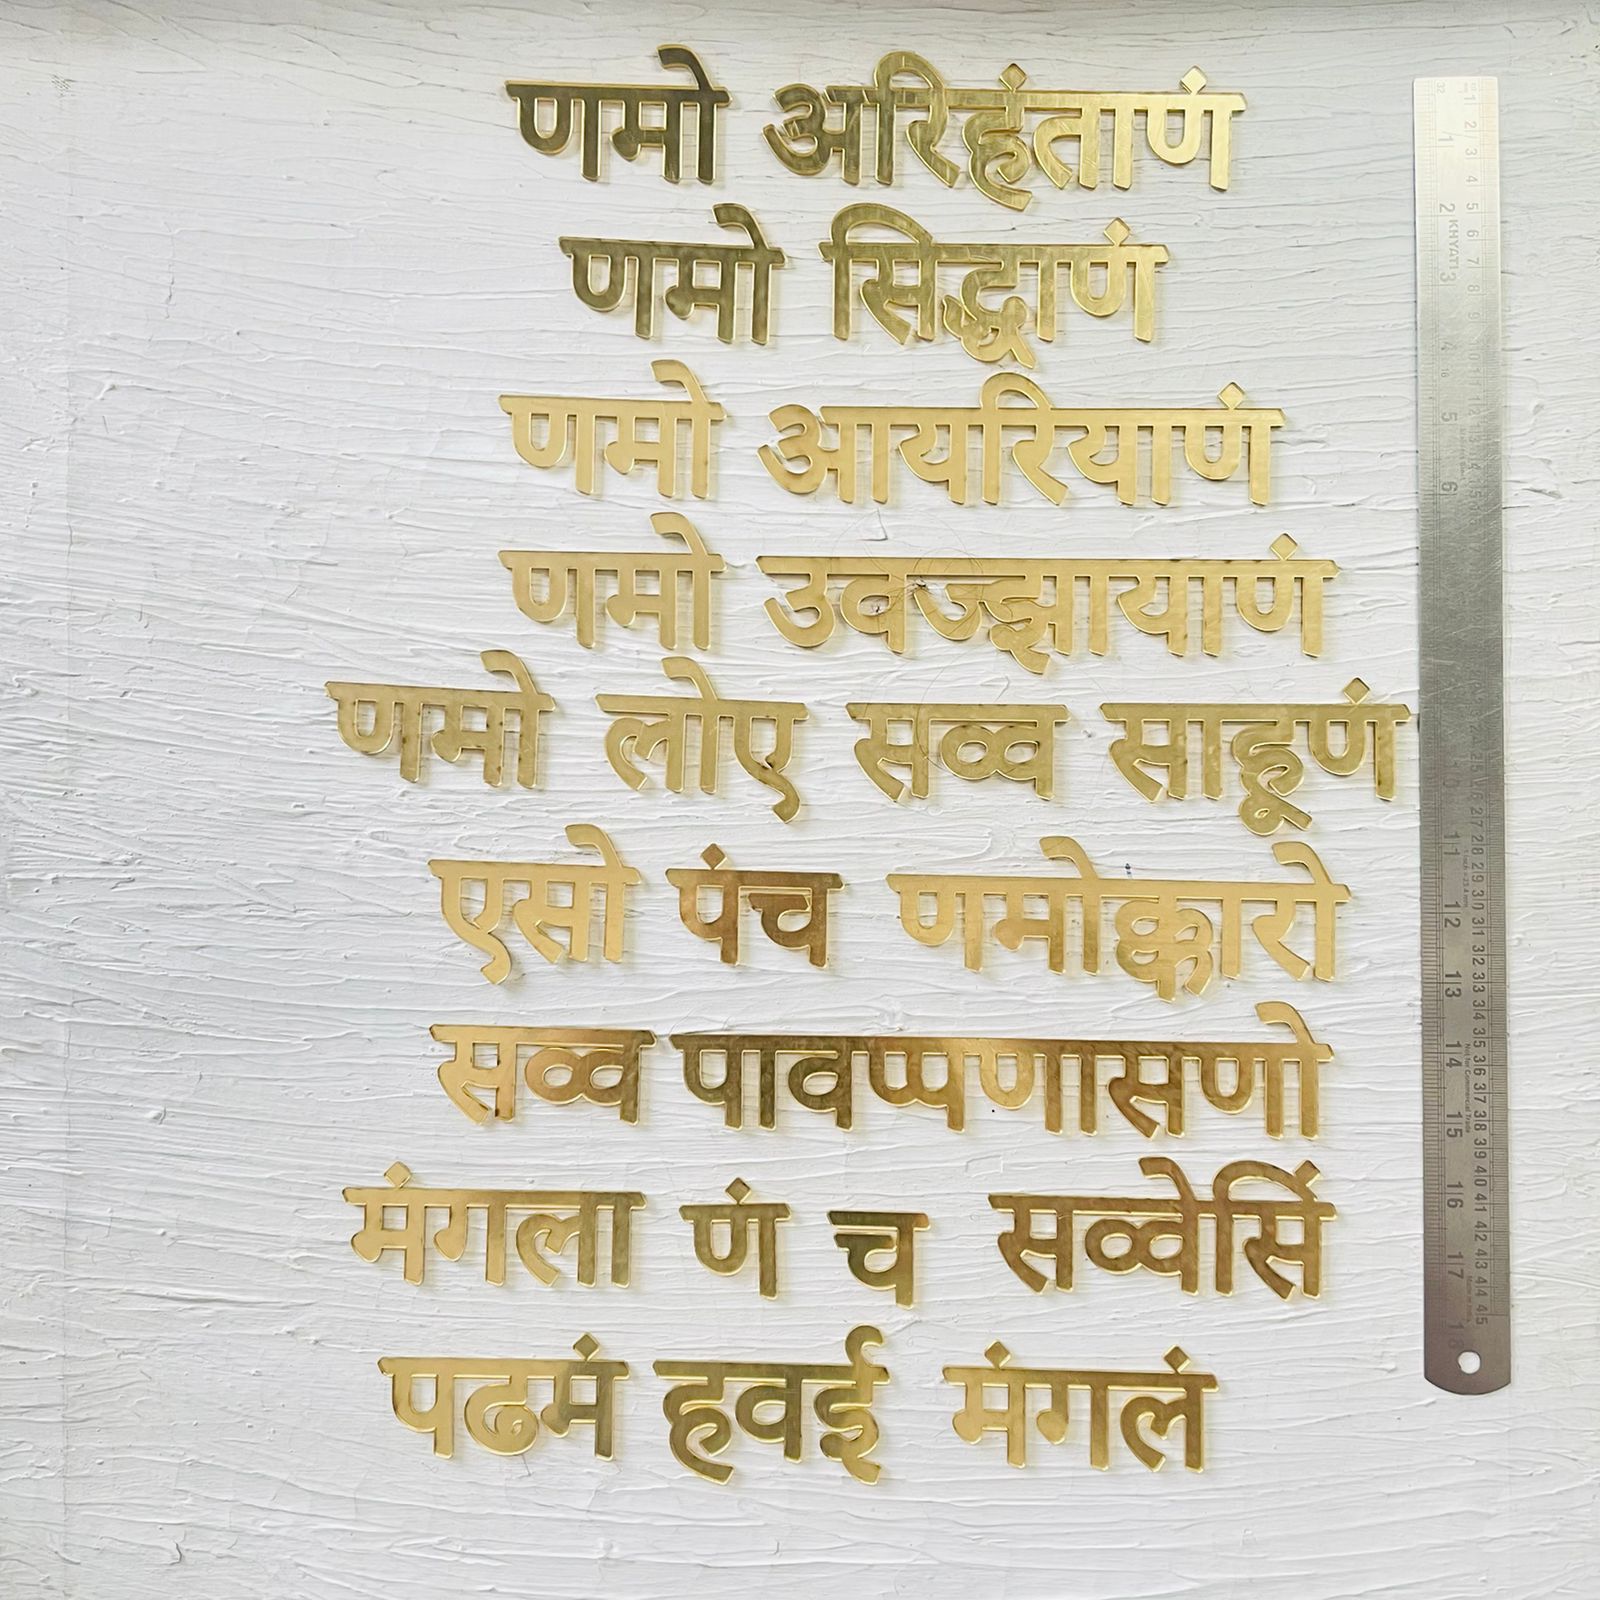 णमो अरिहंताणं
णमो सिद्धाणं
णमो आयरियाणं
णमो उवज्झायाणं
णमो लोए सव्व साहूणं
एसो पंच णमोक्कारो
सव्व पावप्पणासणो
मंगला णं च सव्वेसिं
पढमं हवई मंगलं
KHYATI